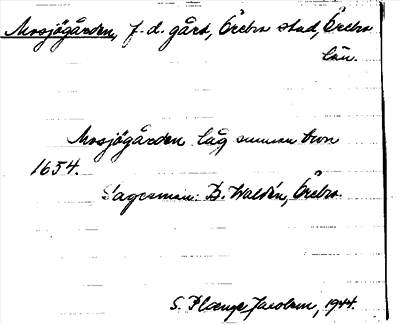 Mosjögården, f.d. gård, Örebro stad, Örebro
län.
Mosjögården låg summa
1654.
Sagesman: B. Waldén, Örebro.
S. Jacobsson, 1944.